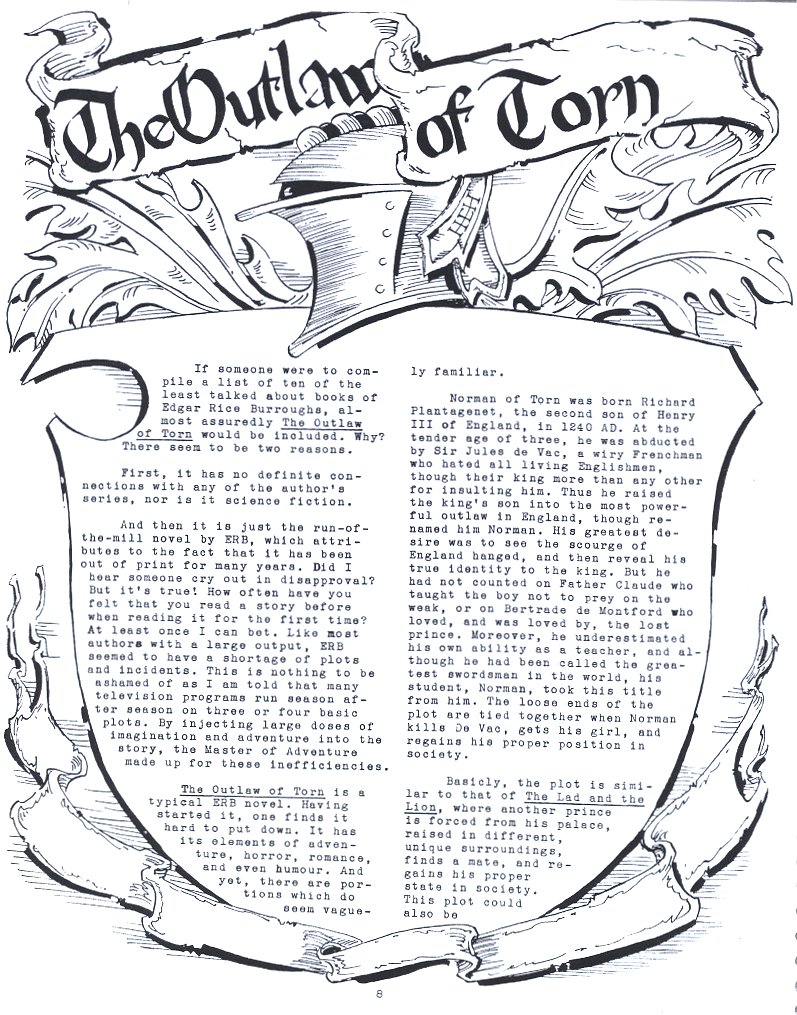 The Outlaw of Torn
If someone were to com-
pile a list of ten of the
least talked about books of
Edgar Rice Burroughs, al-
most assuredly The Outlaw
of Torn would be included. Why?
There seem to be two reasons.
First, it has no definite con-
nections with any of the author's
series, nor is it science fiction.
And then it is just the run-of-
the-mill novel by ERB, which attri-
butes to the fact that it has been
out of print for many years. Did I
hear someone cry out in disapproval?
But it's true! How often have you
felt that you read a story before
when reading it for the first time?
At least once I can bet. Like most
authors with a large output, ERB
seemed to have a shortage of plots
and incidents. This is nothing to be
ashamed of as I am told that many
television programs run season af-
ter season on three or four basic
plots. By injecting large doses of
imagination and adventure into the
story, the Master of Adventure
made up for these inefficiencies.
The Outlaw of Torn is a
typical ERB novel. Having
started it, one finds it
hard to put down. It has
its elements of adven-
ture, horror, romance,
and even humour. And
yet, there are por-
tions which do
seem vague-
ly familiar.
Norman of Torn was born Richard
Plantagenet, the second son of Henry
III of England, in 1240 AD. At the
tender age of three, he was abducted
by Sir Jules de Vac, a wiry Frenchman
who hated all living Englishmen,
though their king more than any other
for insulting him. Thus he raised
the king's son into the most power-
ful outlaw in England, though re-
named him Norman. His greatest de-
sire was to see the scourge of
England hanged, and then reveal his
true identity to the king. But he
had not counted on Father Claude who
taught the boy not to prey on the
weak, or on Bertrade de Montford who
loved, and was loved by, the lost
prince. Moreover, he underestimated
his own ability as a teacher, and al-
though he had been called the grea-
test swordsman in the world, his
student, Norman, took this title
from him. The loose ends of the
plot are tied together when Norman
kills De Vac, gets his girl, and
regains his proper position in
society.
Basicly, the plot is simi-
lar to that of The Lad and the
Lion, where another prince
is forced from his palace,
raised in different,
unique surroundings,
finds a mate, and re-
gains his proper
state in society.
This plot could
also be
8